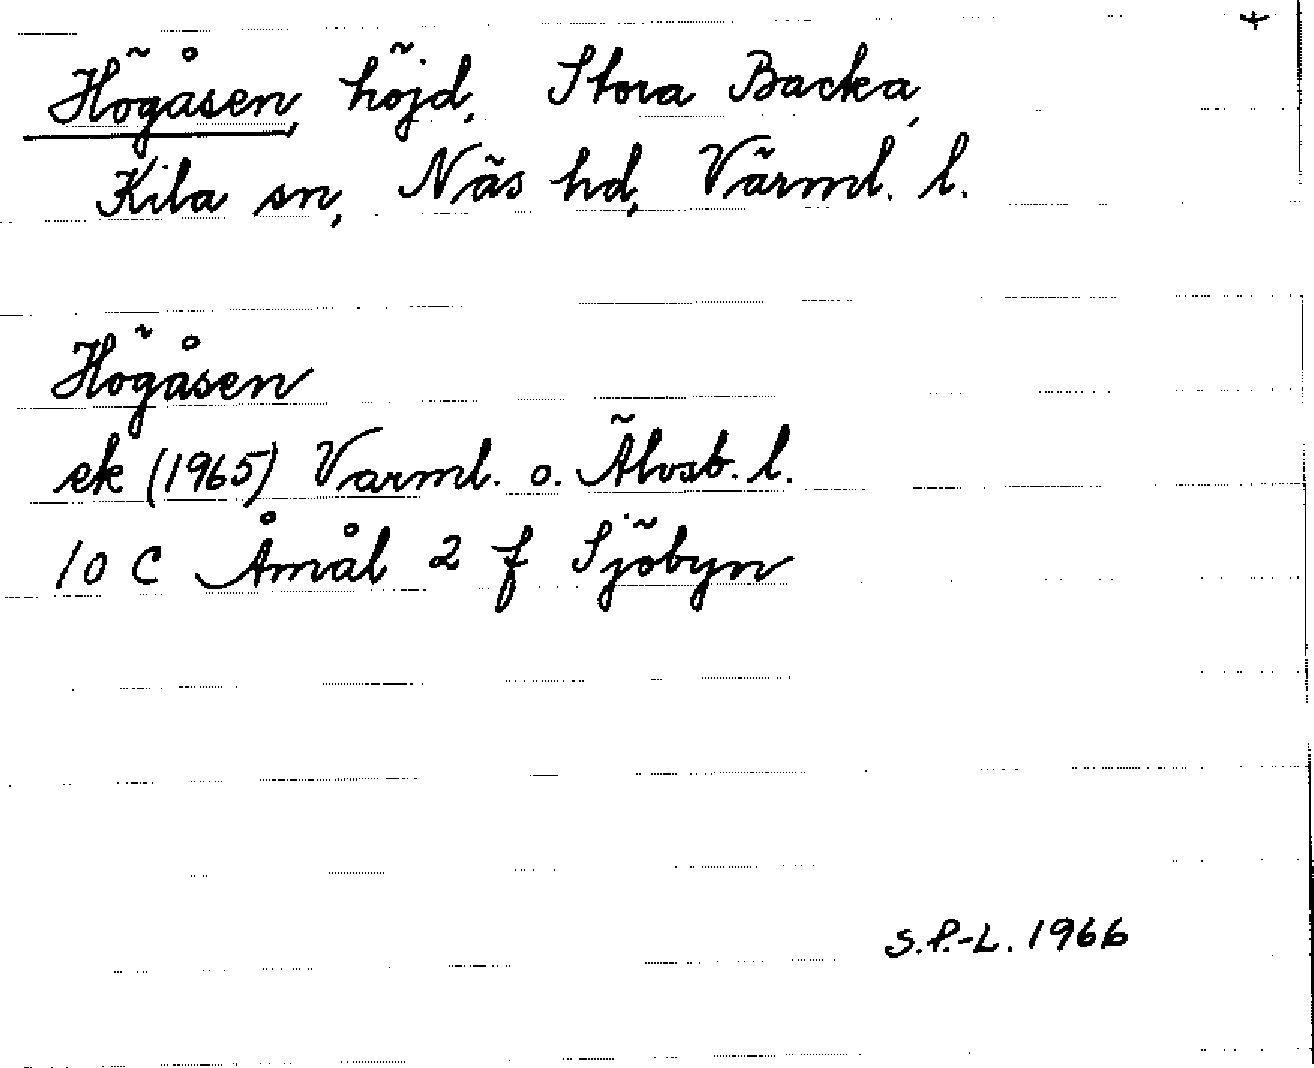 +
Högåsen, höjd, Stora Backa,
Kila sn, Näs hd, Värml. l.
Högåsen
ek (1965) Varml. o. Älvsb. l.
10 C Åmål 2 f Sjöbyn
S.P.-L. 1966